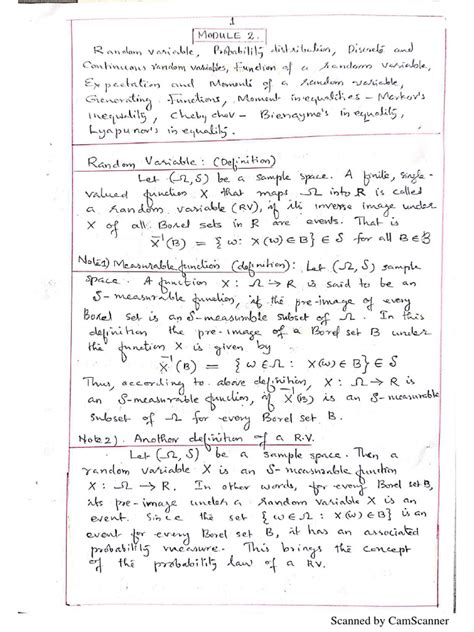 1
MODULE 2.
Random variable, Probability distribution, Discrete and
Continuous random variables, Function of a random variable,
Expectation and Moments of a random variable,
Generating Functions, Moment inequalities - Markov's
inequality, Chebychev - Bienayme's inequality,
Lyapunov's inequality.
Random Variable: (Definition)
Let (Ω, S) be a sample space. A finite, single-
valued function X that maps Ω into R is called
a random variable (RV), if its inverse image under
X of all Borel sets in R are events. That is
X⁻¹(B) = {ω: X(ω) ∈ B} ∈ S for all B ∈ 𝔅
Note 1) Measurable function (definition): Let (Ω, S) sample
space. A function X : Ω → R is said to be an
S-measurable function, if the pre-image of every
Borel set is an S-measurable subset of Ω. In this
definition the pre-image of a Borel set B under
the function X is given by
X⁻¹(B) = {ω ∈ Ω : X(ω) ∈ B} ∈ S
Thus, according to above definition, X : Ω → R is
an S-measurable function, if X⁻¹(B) is an S-measurable
subset of Ω for every Borel set B.
Note 2) Another definition of a R.V.
Let (Ω, S) be a sample space. Then a
random variable X is an S-measurable function
X : Ω → R. In other words, for every Borel set B,
its pre-image under a random variable X is an
event. Since the set {ω ∈ Ω : X(ω) ∈ B} is an
event for every Borel set B, it has an associated
probability measure. This brings the concept
of the probability law of a RV.
Scanned by CamScanner